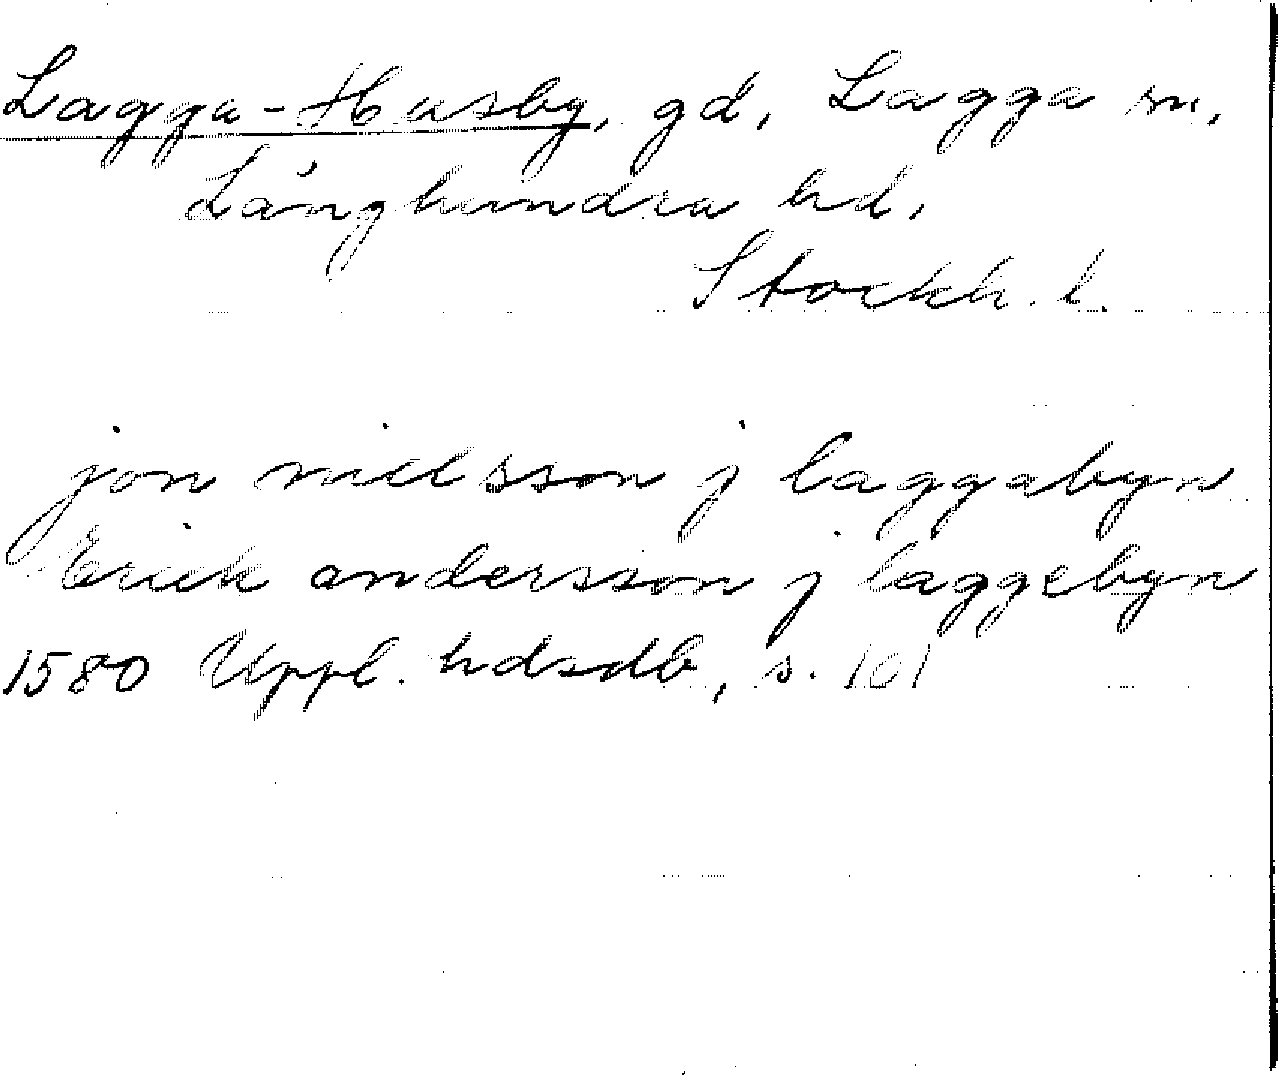 Lagga-Husby, gd, Lagga sn,
Långhundra hd,
Stockh. l.
jon nielsson j laggabyn
Erick andersson j laggebyn
1580 Uppl. hdsdb, s. 101